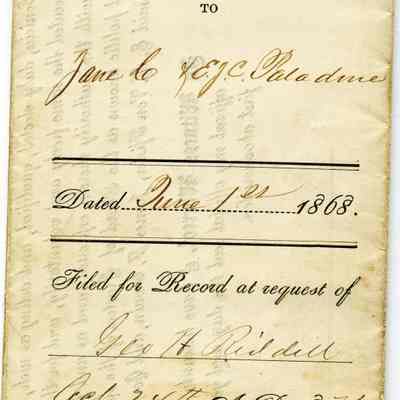 TO
Jane C & E.J.C. Paladine
Dated June 1st 1868.
Filed for Record at request of
Geo H Riddell
Oct 24th A.D.